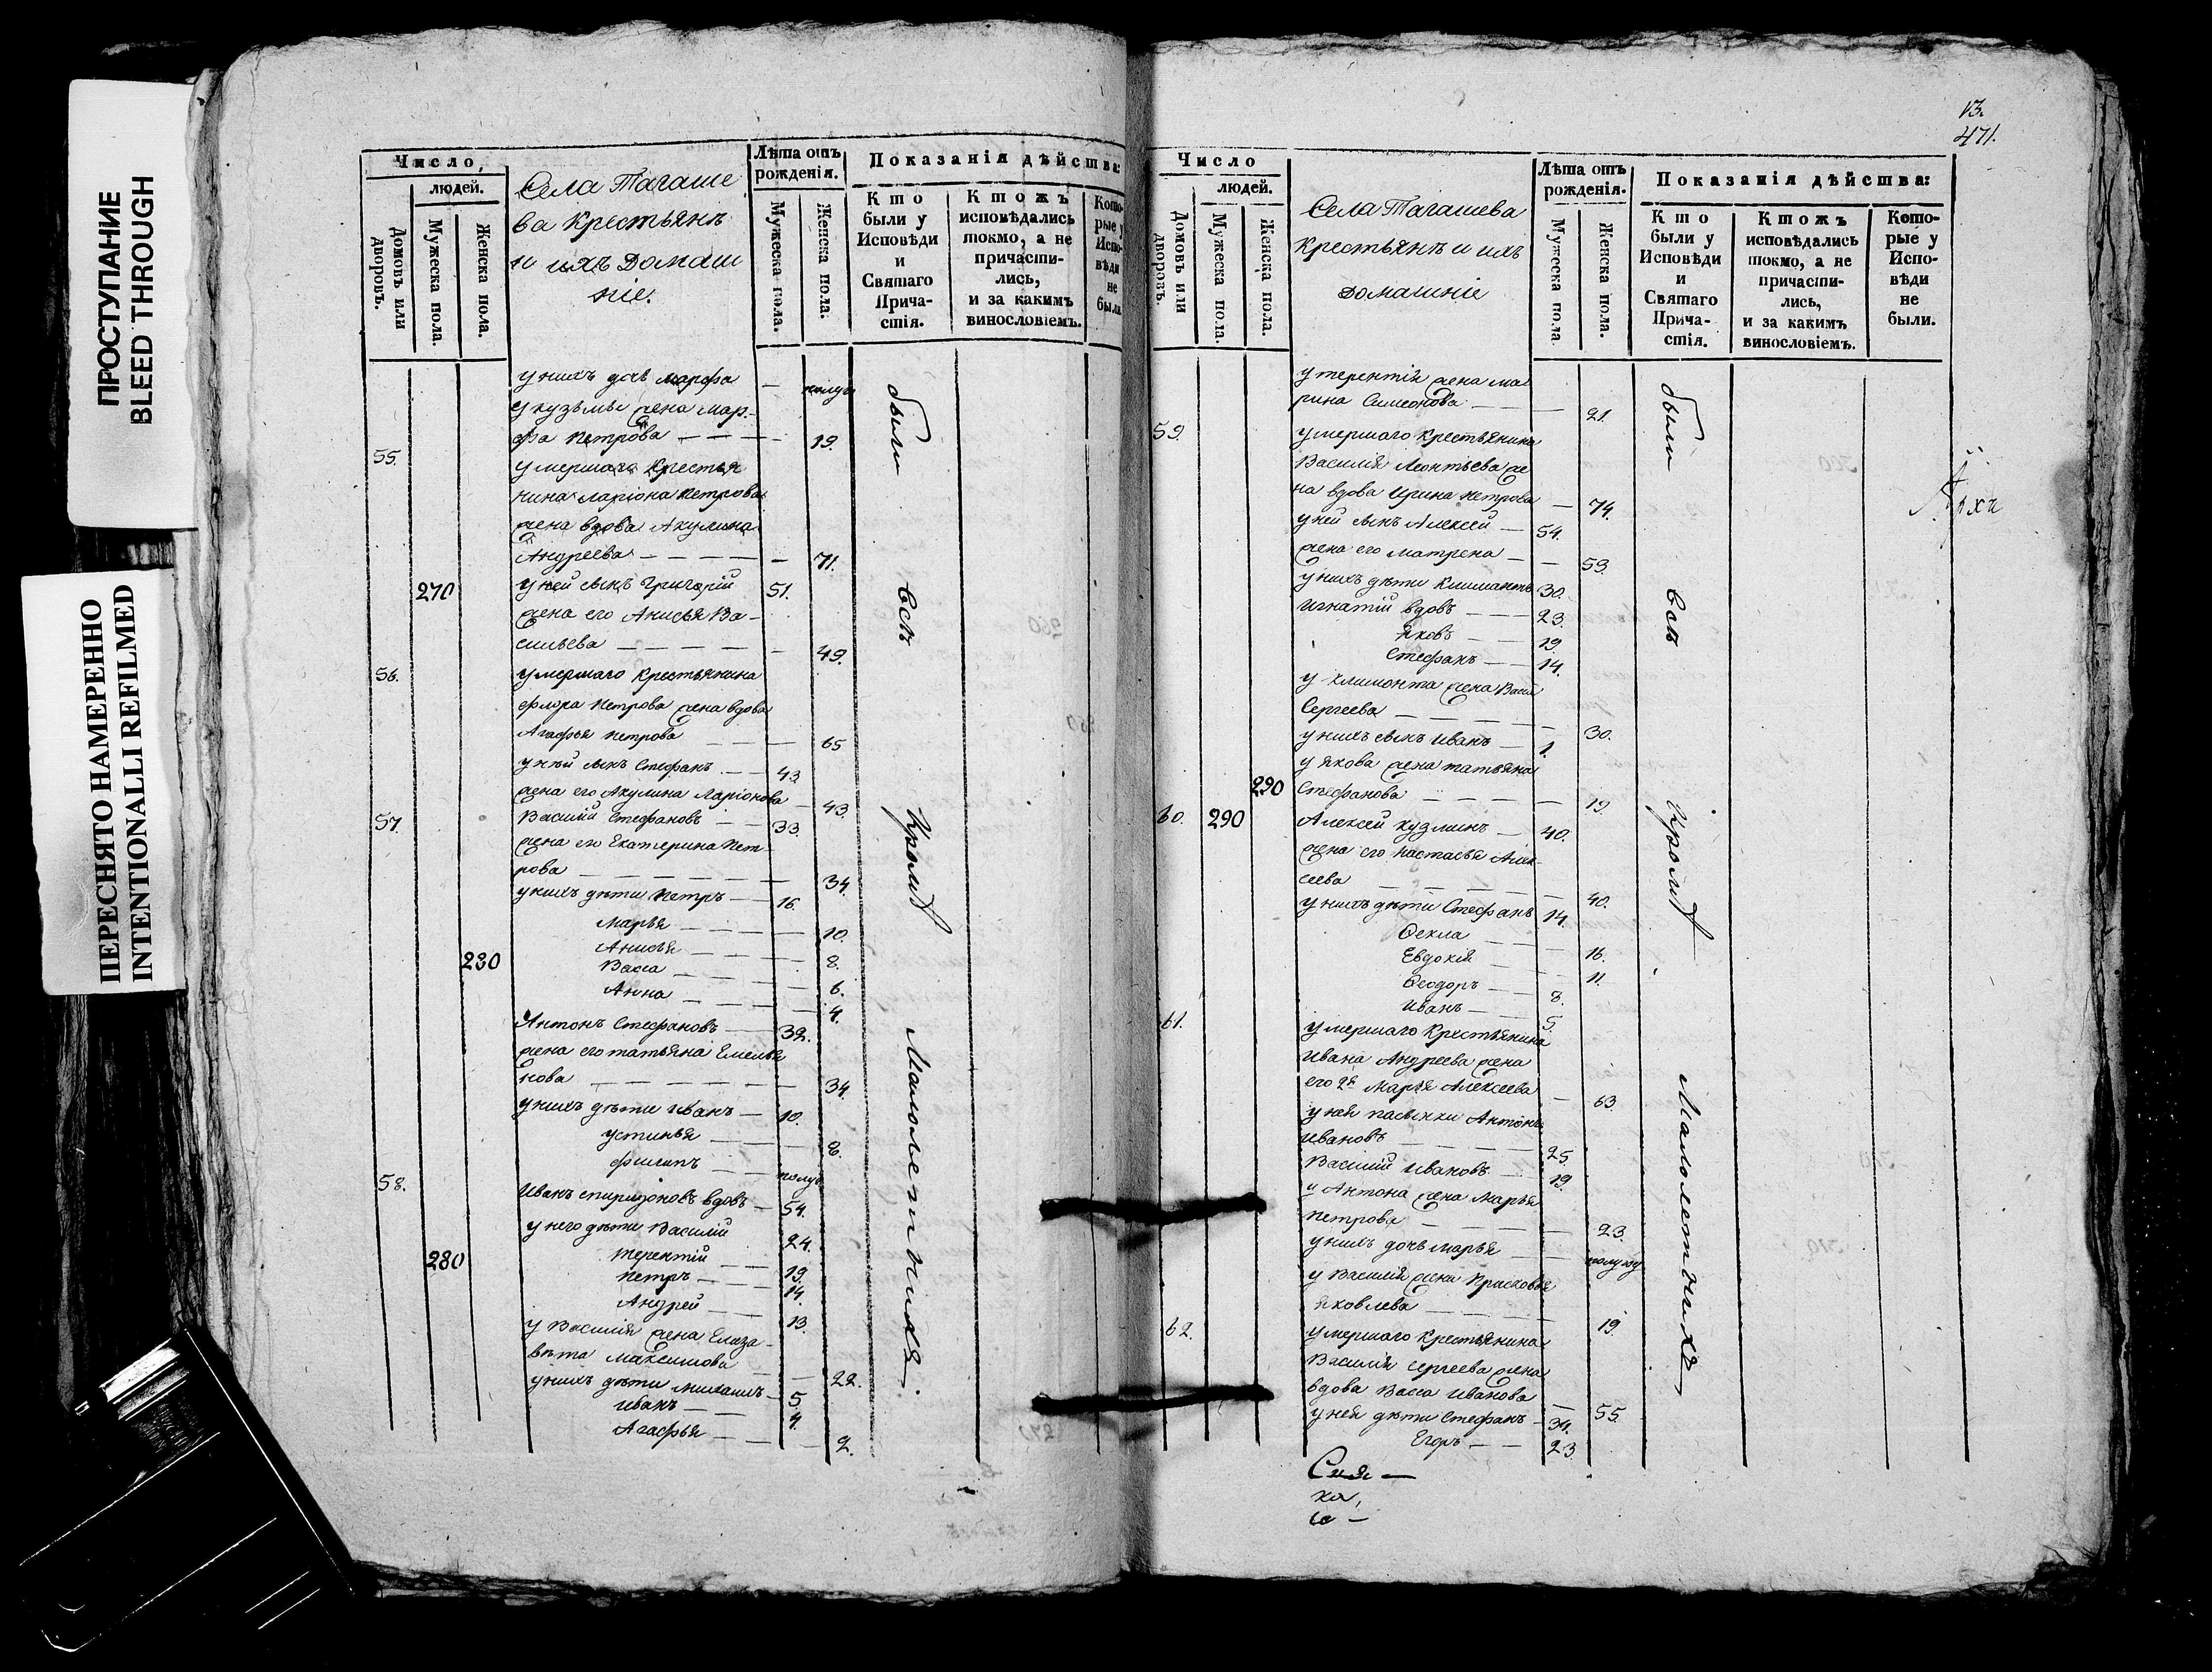 ПРОСТУПАНИЕ
BLEED THROUGH
ПЕРЕСНЯТО НАМЕРЕННО
INTENTIONALLI REFILMED
Число,
людей.
Домовъ или дворовъ.
Мужеска пола.
Женска пола.
Села Тагаше
ва Крестьянъ
и ихъ Домаш
ніе.
Лѣта отъ
рожденія.
Мужеска пола.
Женска пола.
Показанія дѣйства:
Кто
были у
Исповѣди
и
Святаго
Прича-
стія.
Ктожъ
исповѣдались
токмо, а не
причасти-
лись,
и за какимъ
винословіемъ.
Кото-
рые у
Испо-
вѣди
не
были.
у нихъ дочь Марфа — полуг
у кузьмы жена Мар-
фа Петрова — — — 19.
55. умершаго Крестья
нина Ларіона Петрова
жена вдова Акулина
Андреева — — — — 71.
270 у ней сынъ Григорій 51.
жена его Анисья Ва-
сильева — — — — — 49.
56. умершаго Крестьянина
флора Петрова жена вдова
Агафья Петрова — — — 65
у ней сынъ Стефанъ — — 43
жена его Акулина Ларіонова — 43.
57. Василій Стефановъ — — 33.
жена его Екатерина Пет-
рова — — — — — — 34.
у нихъ дѣти Петръ — — 16.
Марья — — — — 10.
Анисья — — — — 8.
230 Васса — — — — 6.
Анна — — — — 4.
Антонъ Стефановъ — — 32.
жена его татьяна Емелья
нова — — — — — — 34.
у нихъ дѣти Иванъ — 10.
устинья — — — — 8.
филипъ — — полуг
58. Иванъ спиридоновъ вдовъ — 54.
у него дѣти Василій 24.
280 терентій — — 19.
петръ — — 14.
Андрей — — 13.
у Василія жена Елиза-
вѣта максимова — — 22.
у нихъ дѣти михаилъ — 5.
иванъ — — 4.
Агафья — — — 2.
были
всѣ
Кромѣ
Малолетнихъ.
13.
471.
Число
людей.
Домовъ или дворовъ.
Мужеска пола.
Женска пола.
Села Тагашева
Крестьянъ и ихъ
домашніе
Лѣта отъ
рожденія.
Мужеска пола.
Женска пола.
Показанія дѣйства:
Кто
были у
Исповѣди
и
Святаго
Прича-
стія.
Ктожъ
исповѣдались
токмо, а не
причасти-
лись,
и за какимъ
винословіемъ.
Кото-
рые у
Испо-
вѣди
не
были.
у терентія жена ма
рина Симеонова — — — 21.
59. умершаго Крестьянина
Василія Леонтьева же
на вдова Ирина Петрова — 74.
у ней сынъ Алексей — 54.
жена его матрена — — 59.
у нихъ дѣти Климантъ 30.
игнатій вдовъ — — 23.
яковъ — — 19.
Стефанъ — — 14.
у климонта жена Васи
Сергеева — — — — — 30.
у нихъ сынъ Иванъ — 1.
у якова жена татьяна
290 Стефанова — — — — 19.
60. 290 Алексей кузминъ — 40.
жена его Настасья Алек-
сеева — — — — — 40.
у нихъ дѣти Стефанъ 14.
Ѳекла — — — 16.
Евдокія — — — 11.
Ѳеодоръ — — 8.
Иванъ — — 5.
61. умершаго Крестьянина
ивана Андреева жена
его 2я Марья Алексеева — 63.
у нея пасынки Антонъ
ивановъ — — — — 25.
Василій ивановъ — 19.
у Антона жена Марья
петрова — — — — — 23.
у нихъ дочь марья — — полугу
у Василія жена Прасковья
яковлева — — — — 19.
62. умершаго Крестьянина
Василія сергеева жена
вдова Васса иванова — 55.
у нея дѣти Стефанъ — 34.
Егоръ — — 23
были
всѣ
Кромѣ
Малолетныхъ